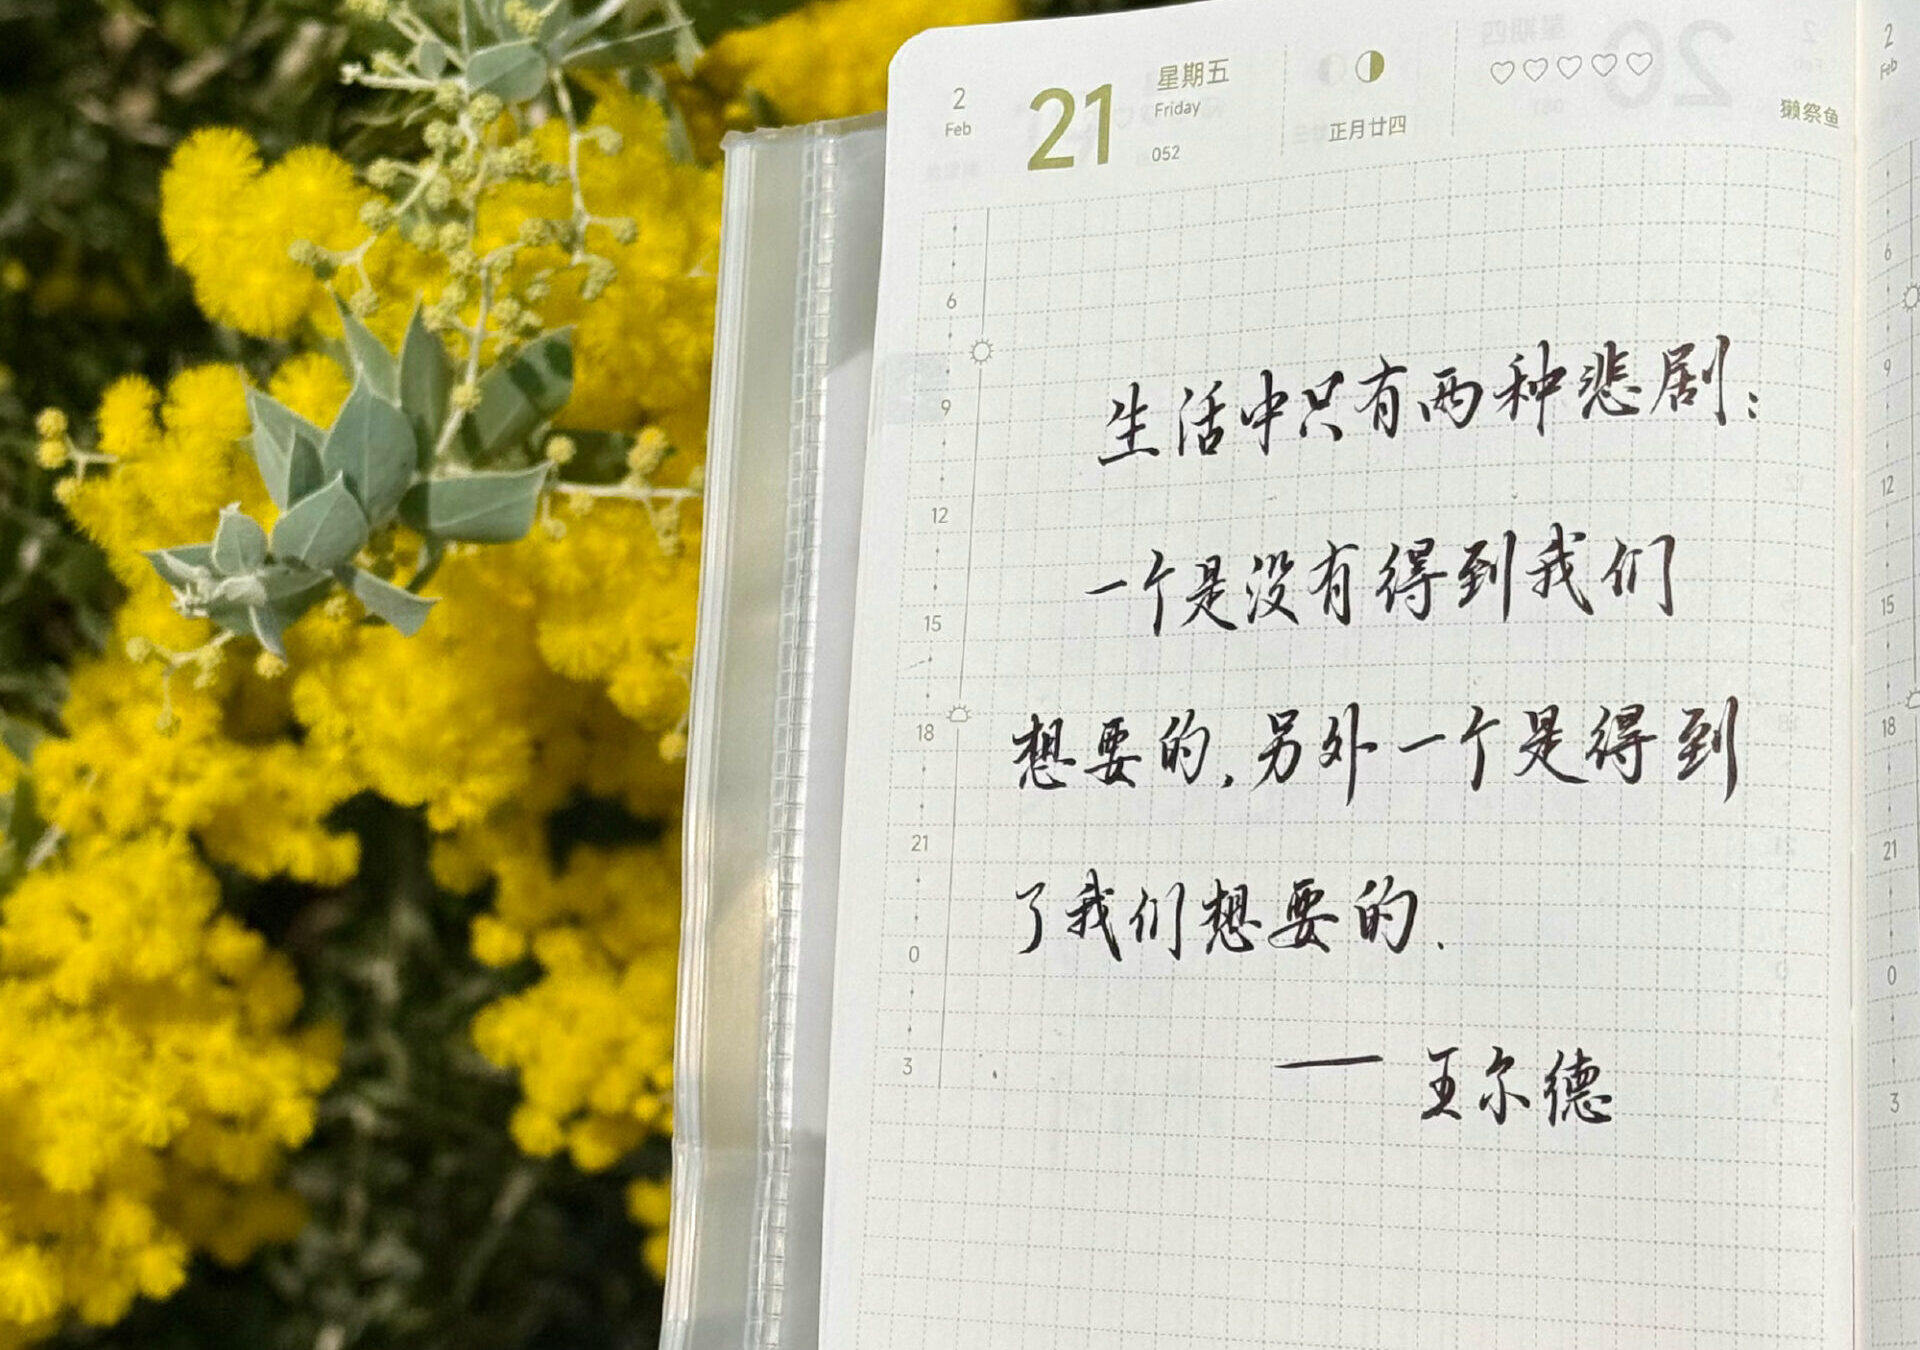 2
Feb
21
星期五
Friday
052
正月廿四
獭祭鱼
6
9
12
15
18
21
0
3
生活中只有两种悲剧：
一个是没有得到我们
想要的，另外一个是得到
了我们想要的.
— 王尔德
2
Feb
6
9
12
15
18
21
0
3